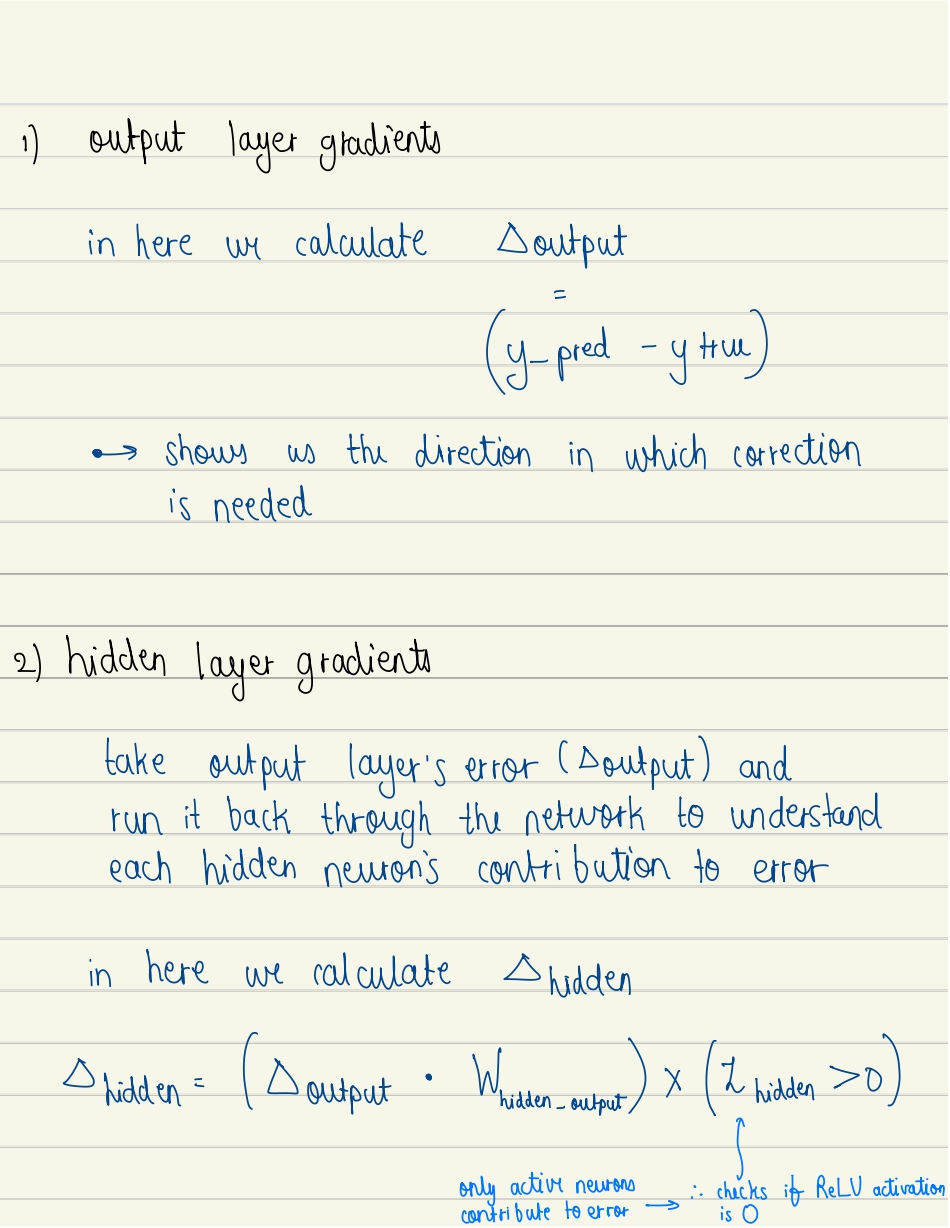 1) output layer gradients
in here we calculate Δoutput
=
(y_pred - y true)
•→ shows us the direction in which correction
is needed
2) hidden layer gradients
take output layer's error (Δoutput) and
run it back through the network to understand
each hidden neuron's contribution to error
in here we calculate Δhidden
Δhidden = (Δoutput · Whidden_output) × (Zhidden >0)
only active neurons → ∴ checks if ReLU activation
contribute to error is 0